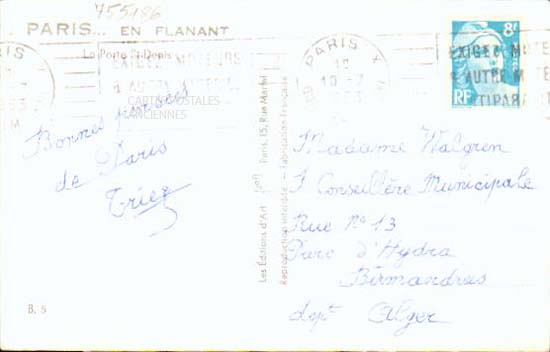 755186
PARIS... EN FLANANT
La Porte St-Denis
Bonnes pensées
de Paris
B. 5
CARTES POSTALES
ANCIENNES
Les Éditions d'Art Paris, 15, Rue Martel
Reproduction interdite - Fabrication Française
PARIS
18
10-7
EXIGEZ
D'AUTRE
8F
RF
Madame Walgren
Conseillère Municipale
Rue N° 13
Parc d'Hydra
Birmandreis
dept Alger